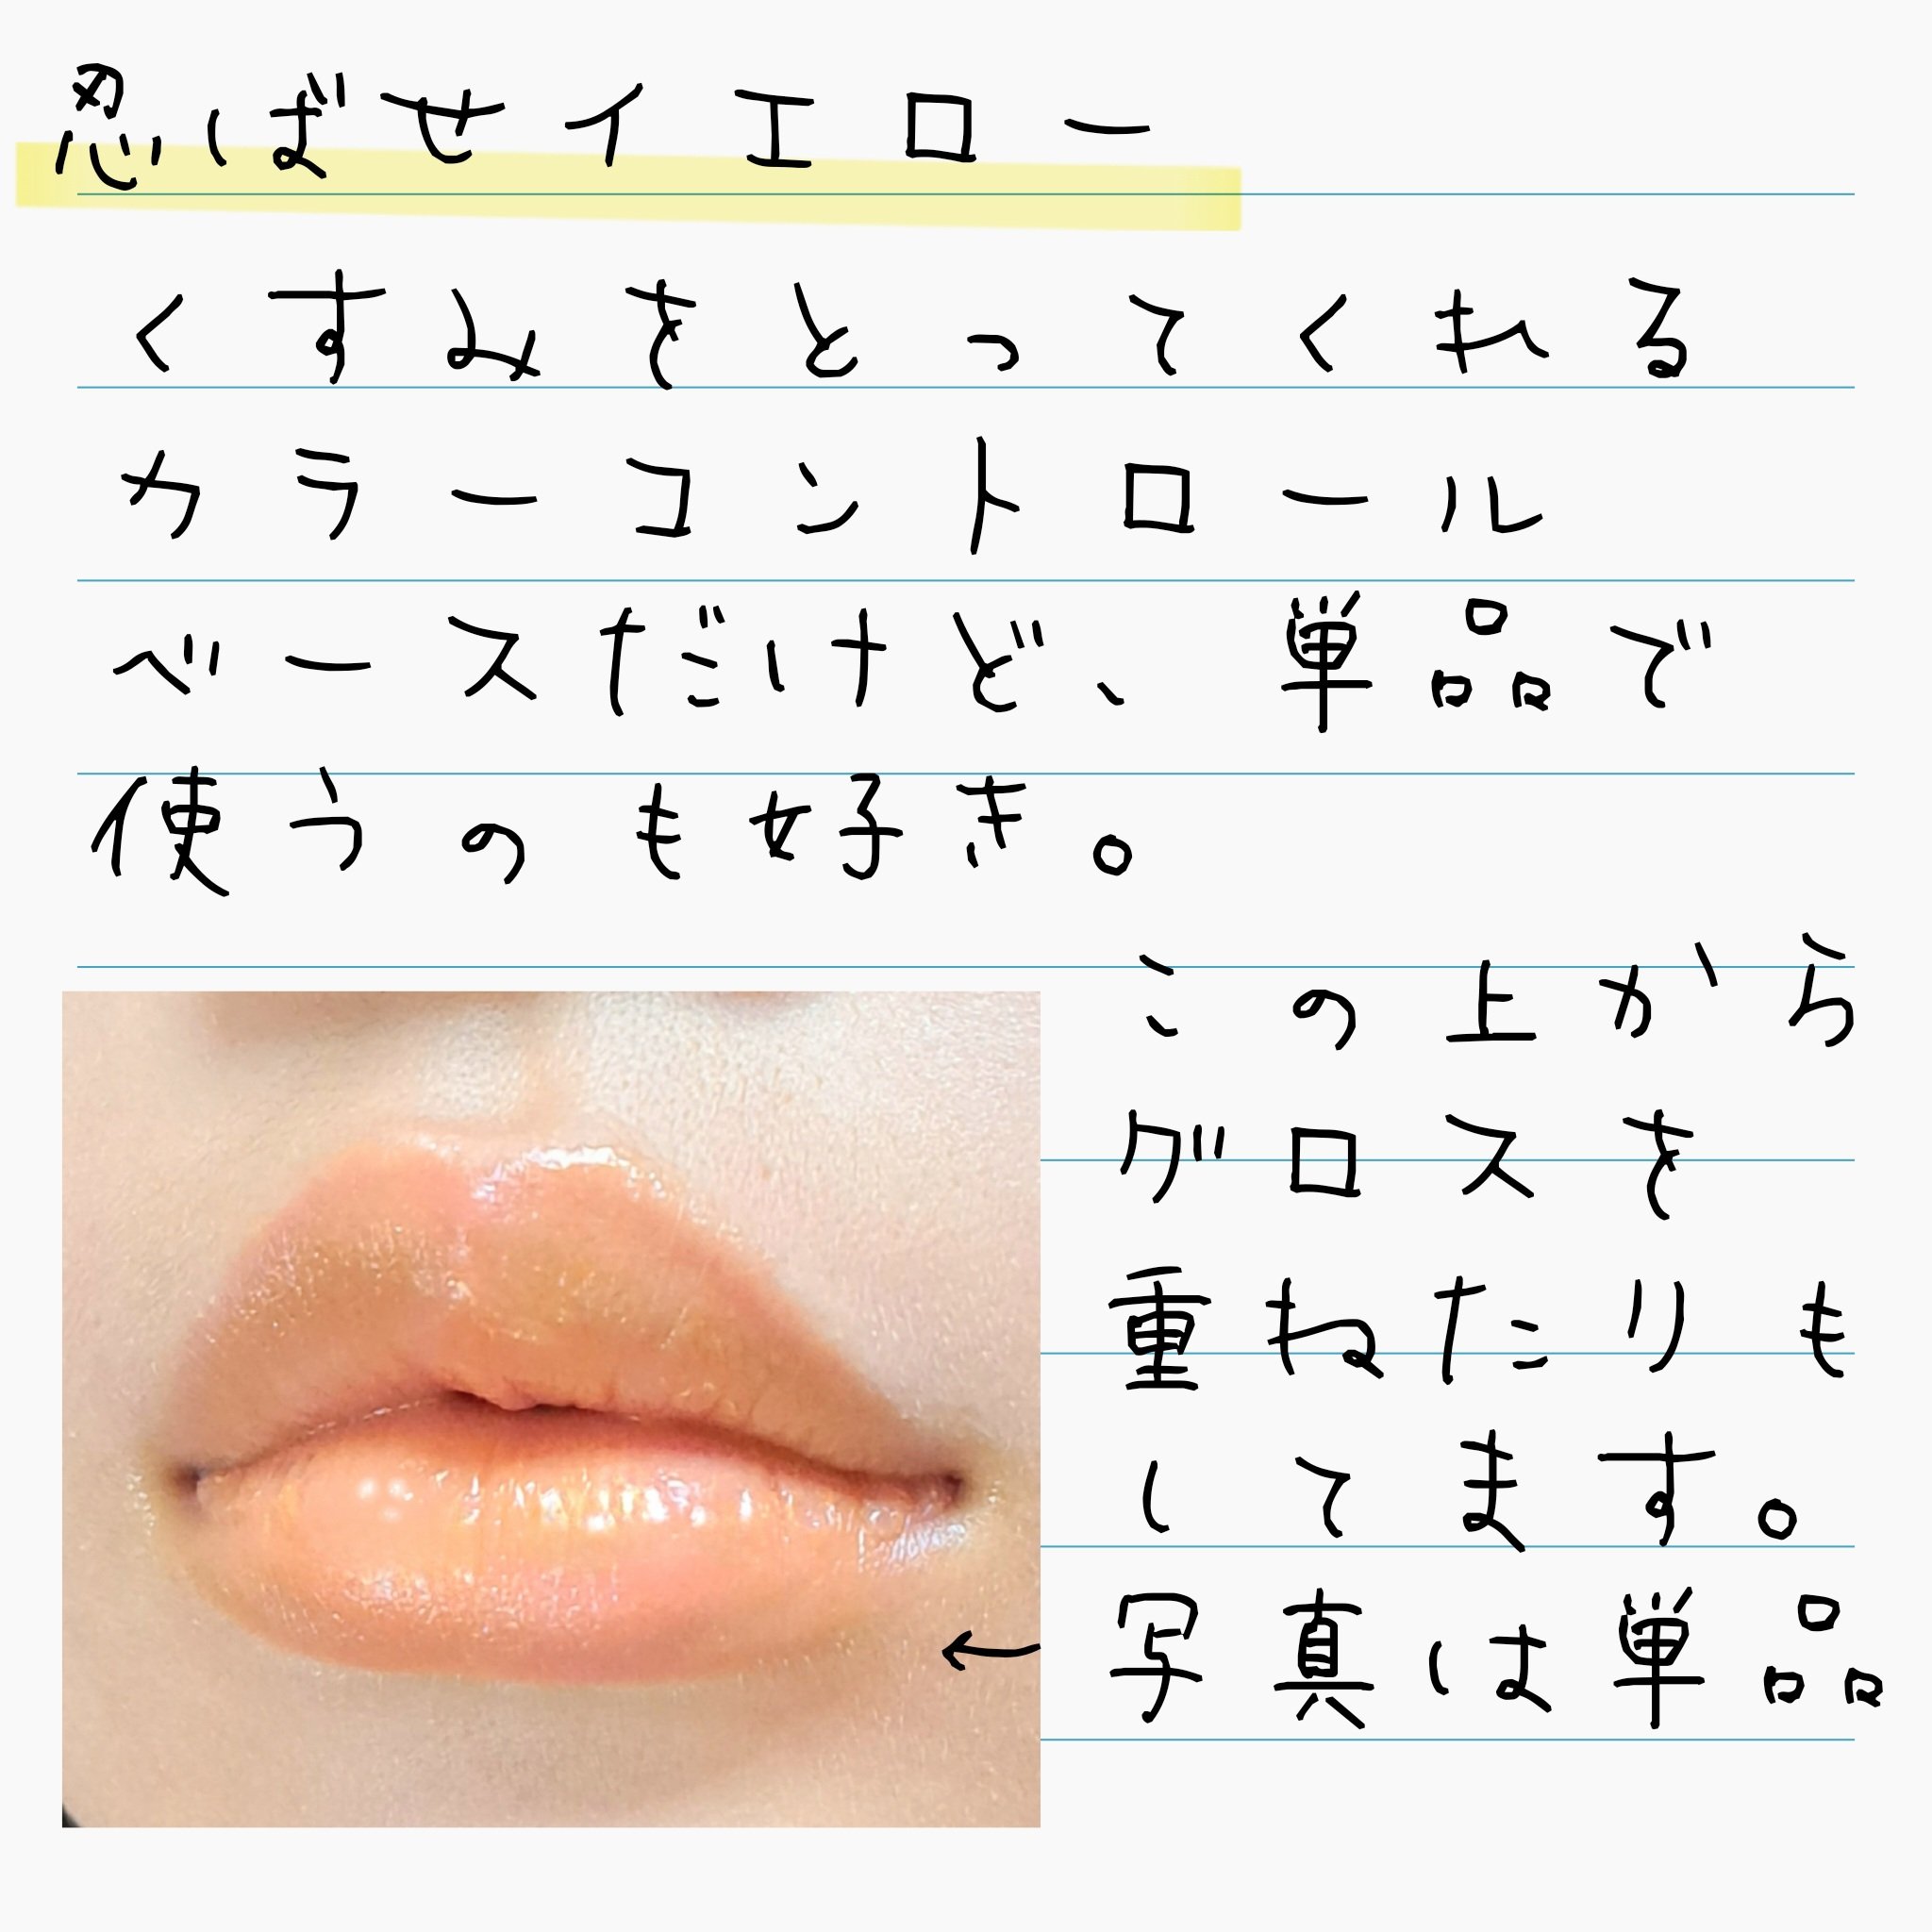 忍ばせイエロー
くすみをとってくれる
カラーコントロール
ベースだけど、単品で
使うのも好き。
この上から
グロスを
重ねたりも
してます。
←写真は単品